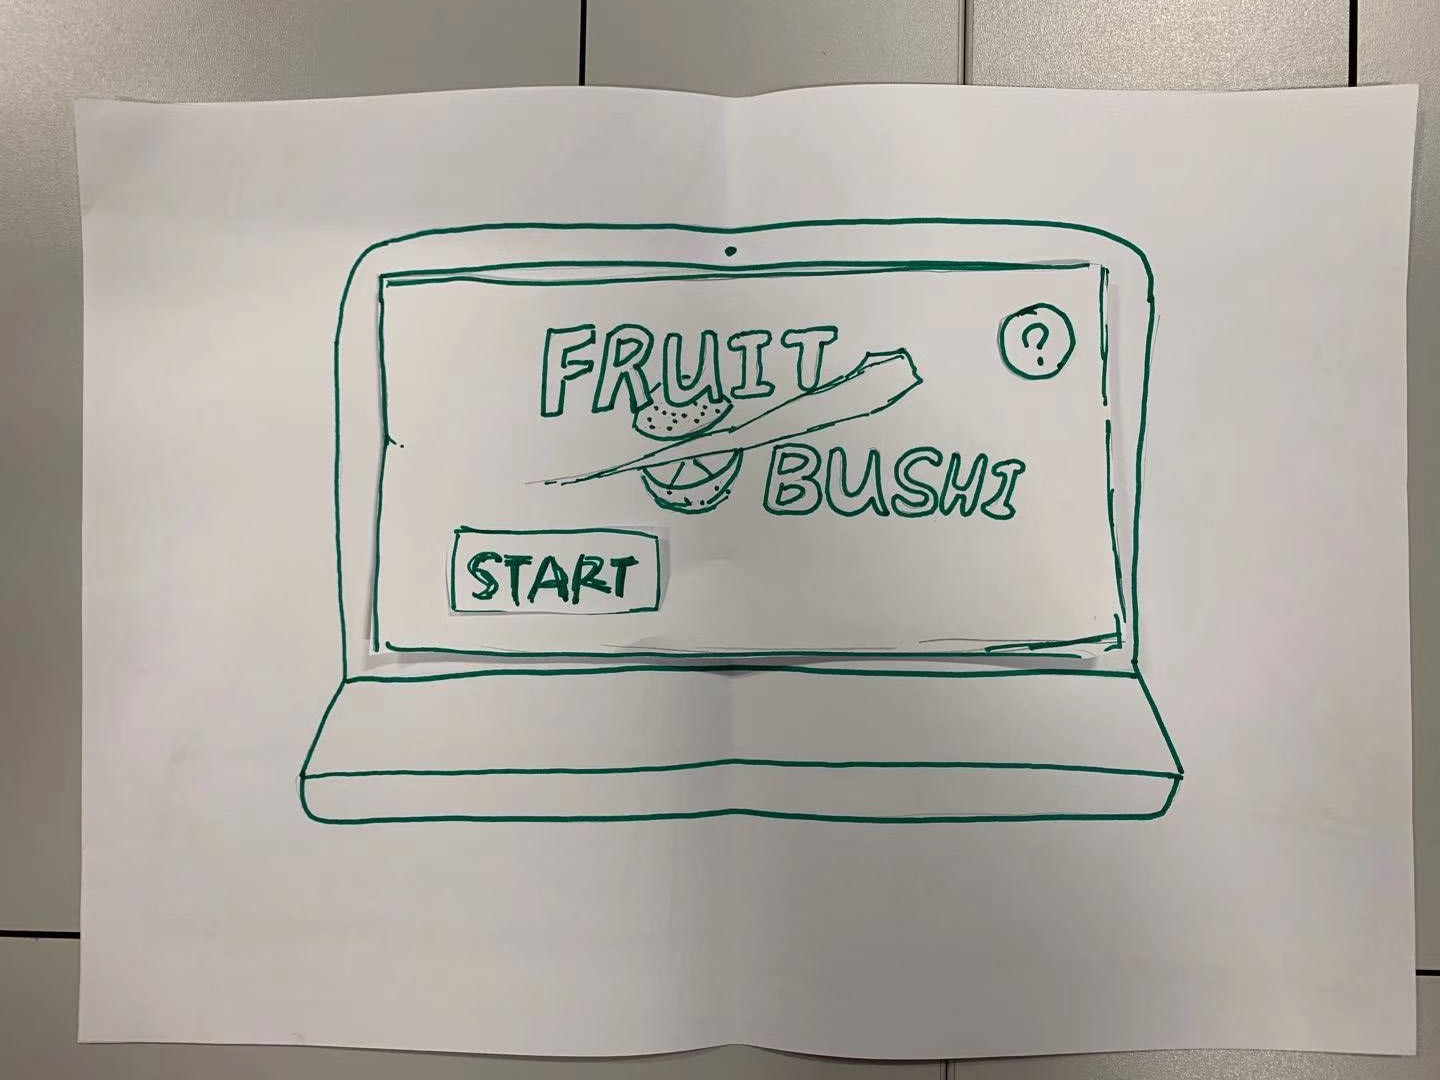 FRUIT
?
BUSHI
START